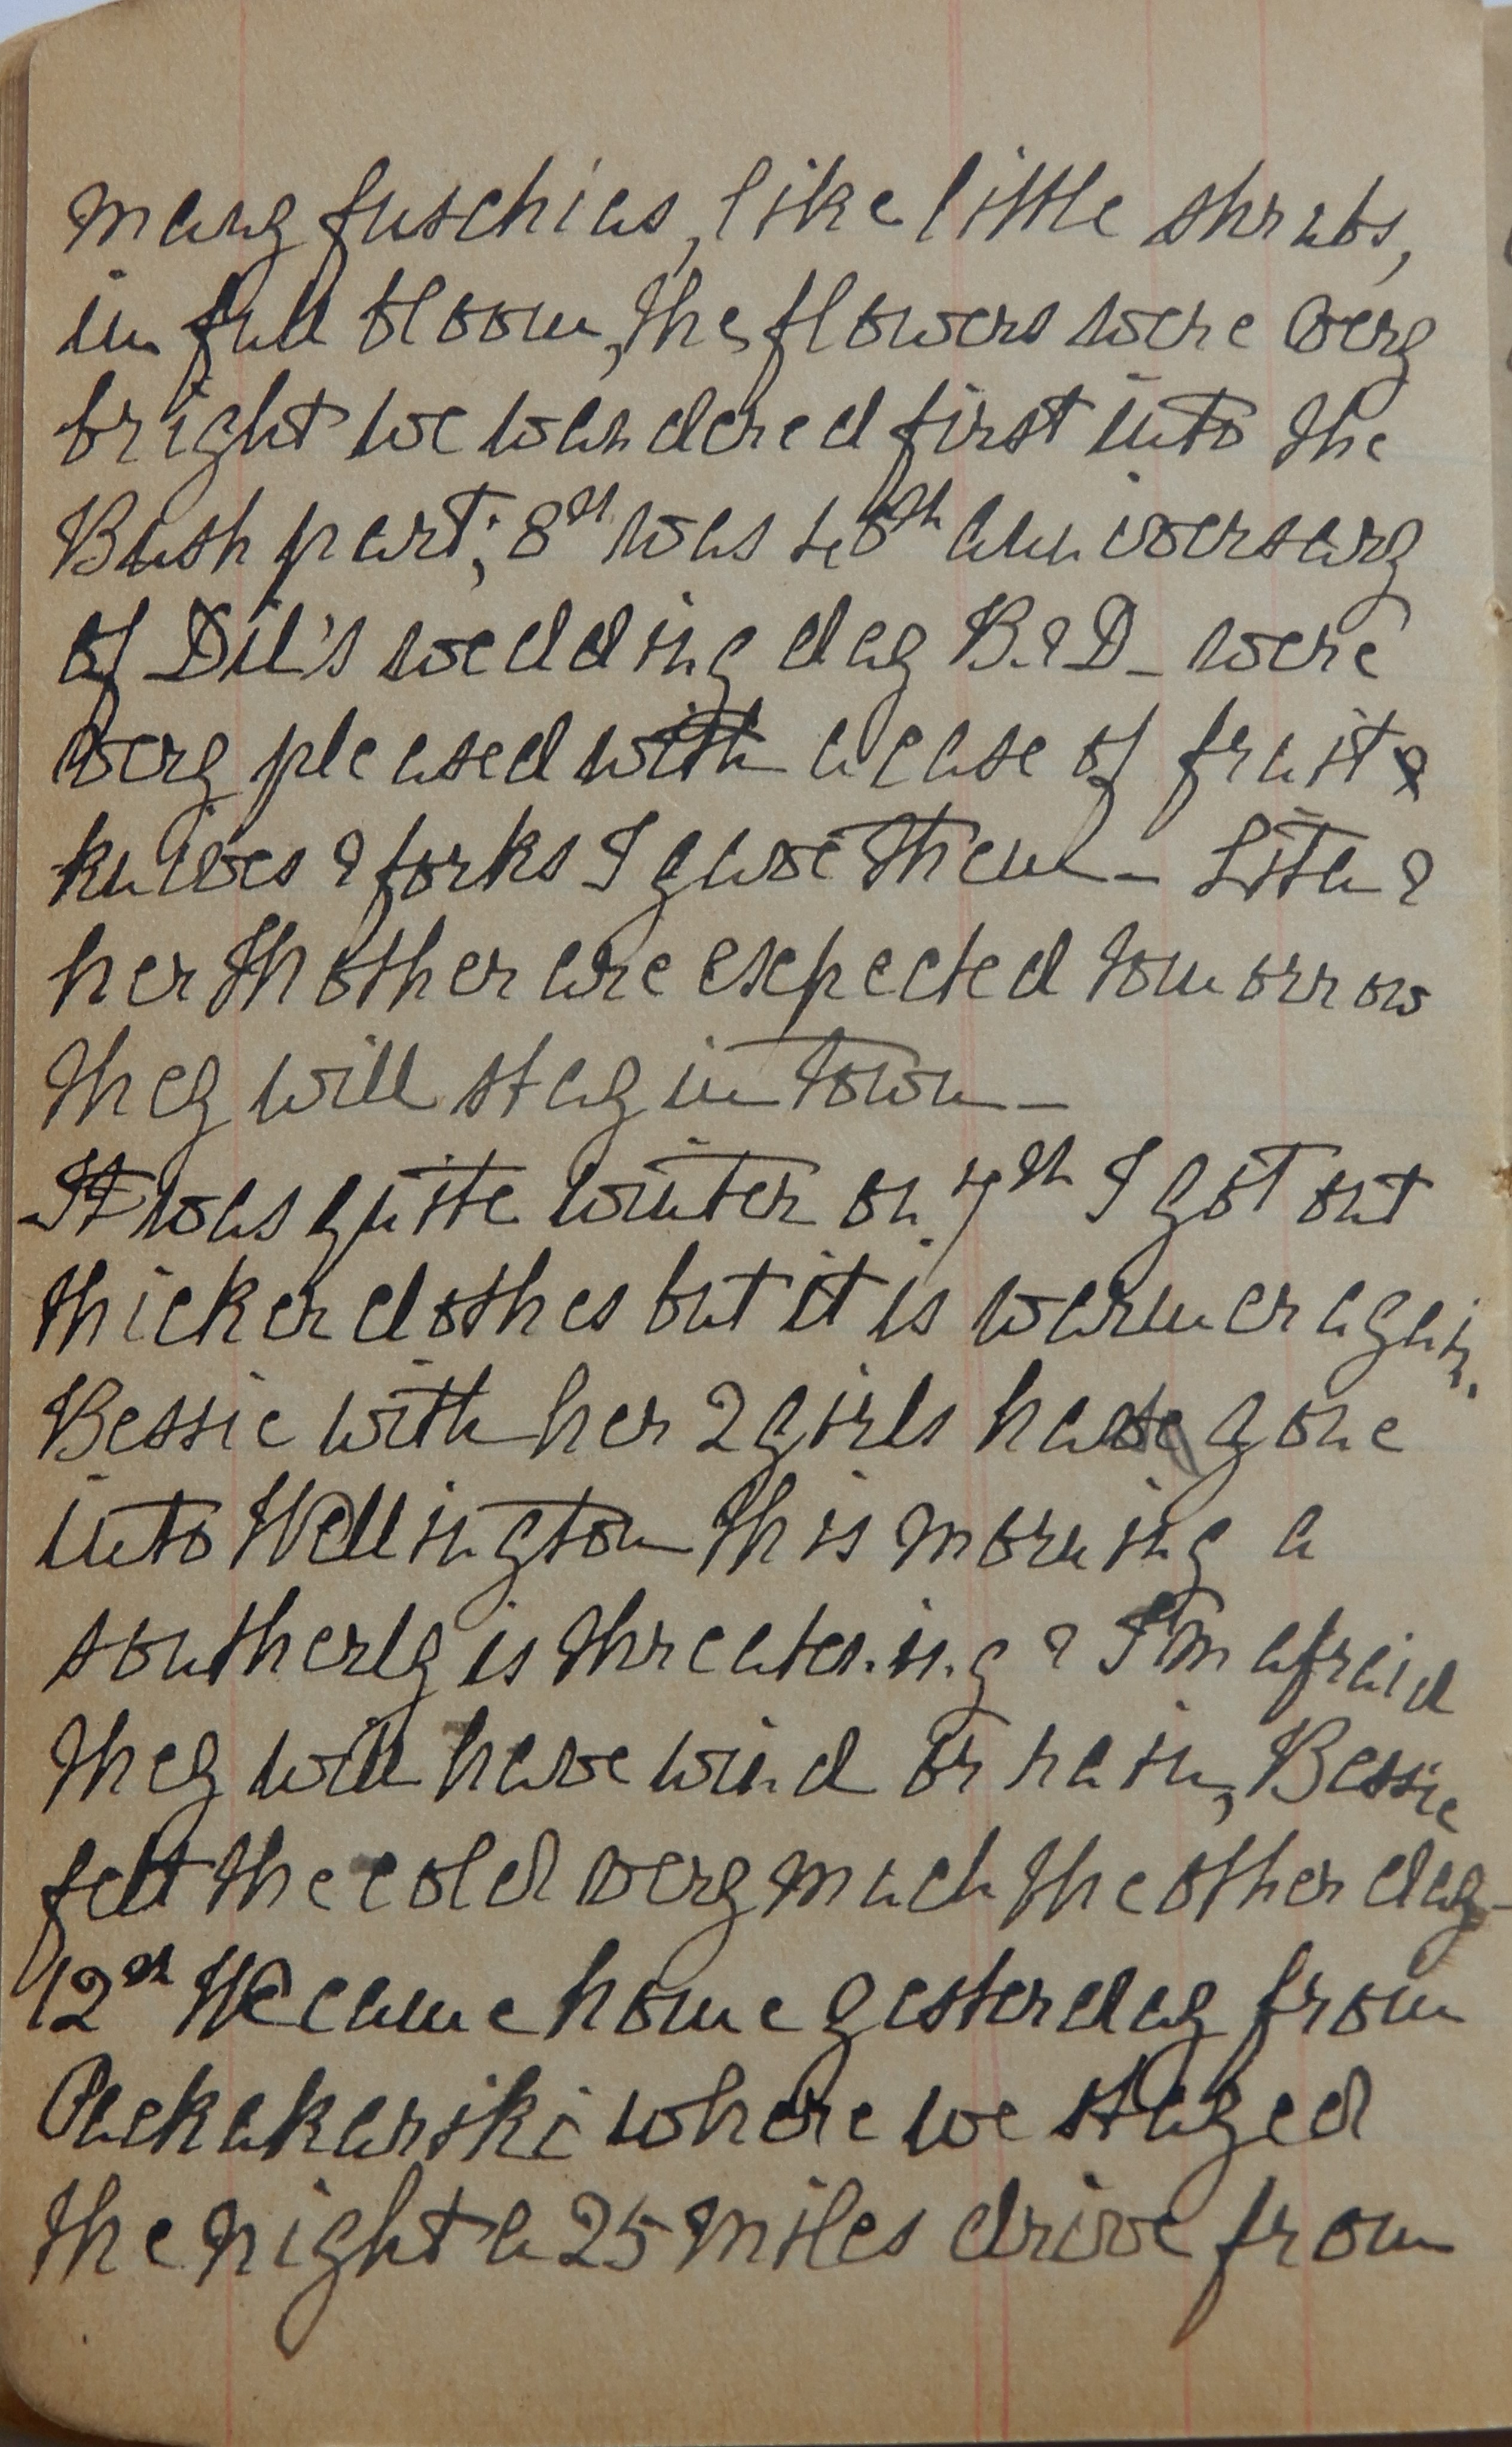 many fuschias, like little shrubs,
in full bloom, the flowers were very
bright we wandered first into the
Bush part; 8th was 40th anniversary
of Dil's wedding day B. & D_ were
very pleased with a case of fruit &
knives & forks I gave them_ Lita &
her Mother are expected tomorrow
they will stay in town_
It was quite winter on 7th I got out
thicker clothes but it is warmer again.
Bessie with her 2 girls have gone
into Wellington this morning a
southerly is threatening & I'm afraid
they will have wind or rain, Bessie
felt the cold very much the other day_
12th We came home yesterday from
Paekakariki where we stayed
the night a 25 miles drive from